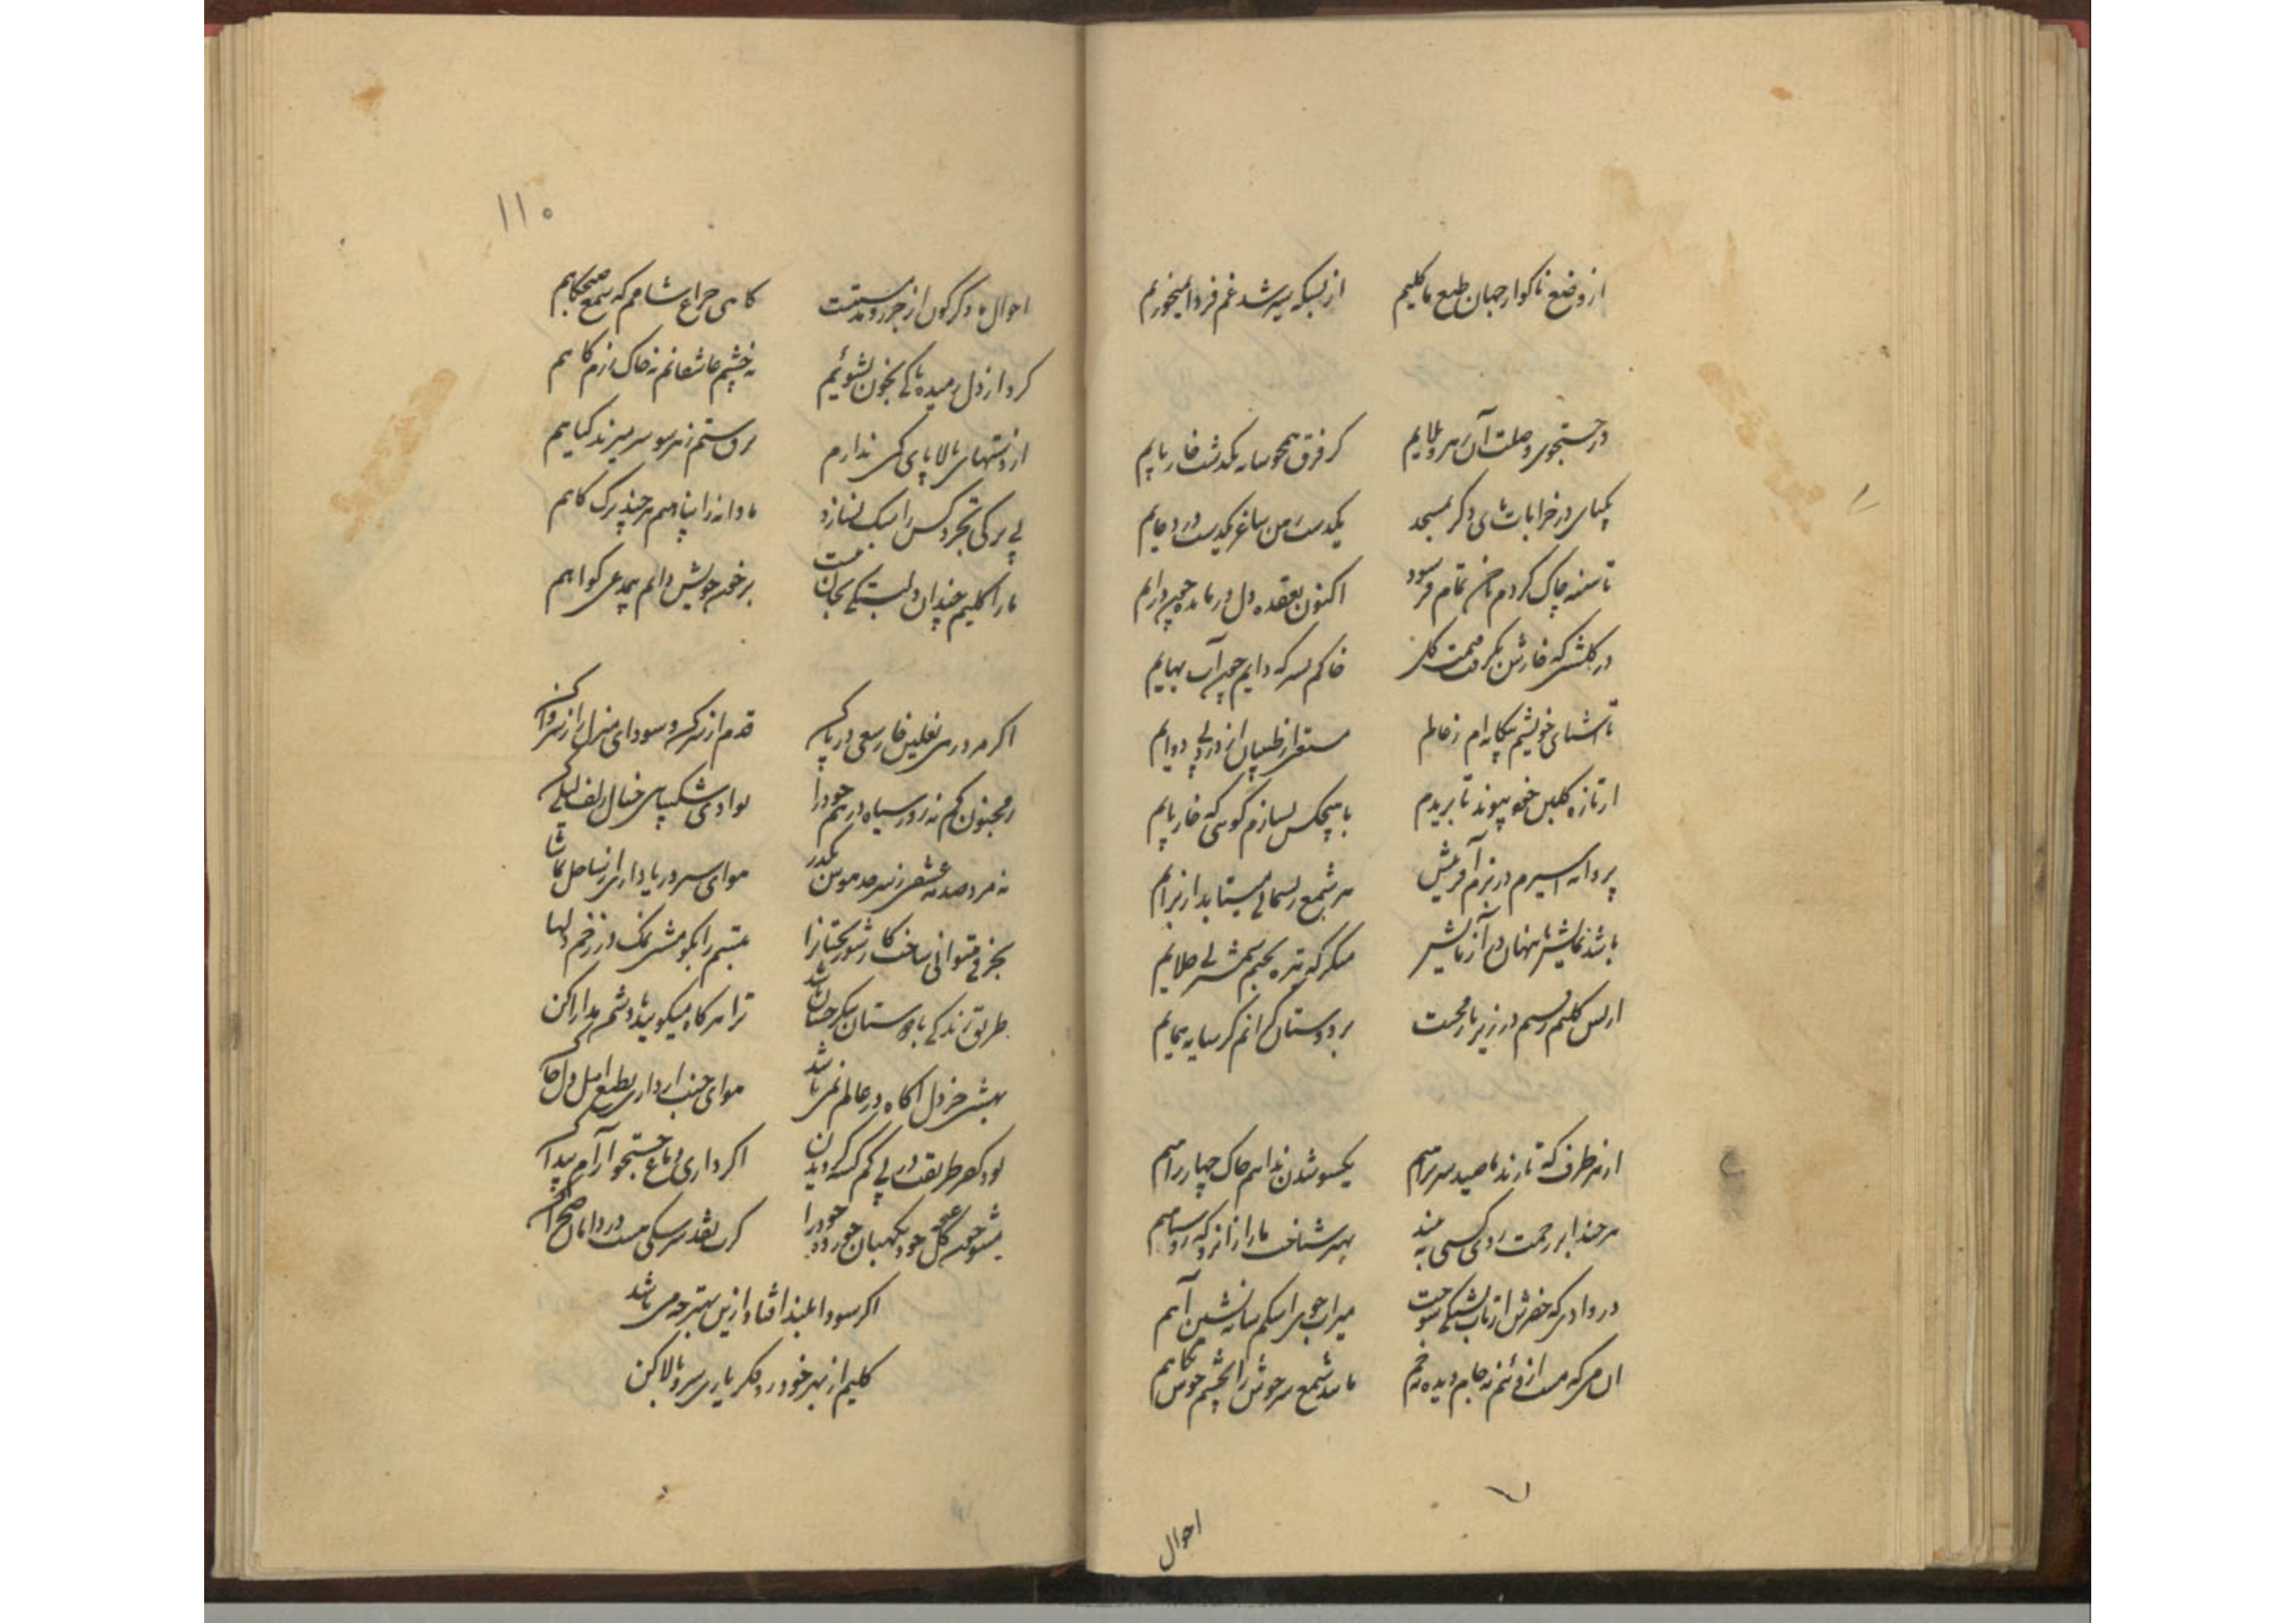 از وضع ناگوار جهان طبع ما کلیم از بسکه سیر شد غم فردا نمیخوریم
در جستجوی وصلت آن رهرو بلایم کز فرق همچو شانه بگذشت خار پایم
یکپای در خرابات پای دگر بمسجد یکدست من ساغر یکدست در دعایم
تا سینه چاک کردم ناخن تمام فرسود اکنون بعقده دل درمانده چون درایم
در گلشنی که خارش نگرفت گل خاکم بسر که دایم چون آب
تا آشنای خویشم بیگانه ام ز عالم مستغنی از طبیبان از درد بی دوایم
از تازه گلبن خود پیوند تا بریدم با هیچکس نسازم گوئی که خار پایم
پروانه اسیرم در بزم آفرینش هر شمع ریسمانی میتابد از برایم
باشد نمایش ما پنهان در آزمایش منگر که تیره بختم شمشیر بی جلایم
از بس کلیم رفتم در زیر بار محنت بر دوستان گرانم گر سایه همایم
از هر طرف که تازند ما صید سر براهیم یکسو شدن نداریم خاک چهار راهیم
هر چند ابر رحمت روی کسی نه بیند بهتر شناخت ما را از آنرو که رو سیاهیم
در وادی که خضرش از تاب تشنگی سوخت میراب جوی اشکم شانه نشین آهیم
آن می که مست از وئیم نه جام دیده نه خم مانند شمع سرخوش از چشم خوش نگاهیم
احوال
۱۱۰
احوال ما دگرگون از جزر و مد هستیست گاهی چراغ شامم گه شمع صبحگاهم
گرد از دل رمیده تا کی بخون بشوئیم نه چشم عاشقانم نه خاک رزم گاهم
از دستهای بالا پای کمی ندارم بر دستم زهر سو سر میزند گیاهم
بی برگی تجرد کس را سبک نسازد ما دانه را پناهیم هر چند برگ کاهم
ما را کلیم چندان دلبستگی بجان نیست بر خون خویش دایم بیمدعی گواهم
اگر مرد رهی نعلین خار سعی در پا کن قدم از سر کن و سودای منزل را ز سر وا کن
ز مجنون کم نه روز سیاه درهم خود را بوادی شکیبائی خیال زلف لیلی کن
نه مرد صدمه عشقی ز سر حد هوس بگذر هوای سیر دریا داری از ساحل تماشا کن
بجز می میتوانی ساخت کار شوربختانرا تبسم را بگو مشت نمک در زخم دلها کن
طریق زندگی با دوستان بنگر چسان باشد ترا هرگاه میگویند با دشمن مدارا کن
بهشتی جز دل آگاه در عالم نمی باشد هوای جنت ار داری بطبع اهل دل جا کن
بود کفر طریقت در پی گم گشته گردیدن اگر داری دماغ جستجو آرام پیدا کن
مشو چون گل خود نگهبان خورده خود را گرت نقد سرشکی هست در دامان صحرا کن
اگر سودا بلند افتاد ازین بهتر چه می باشد
کلیم از بهر خود در فکر یاری سرو بالا کن